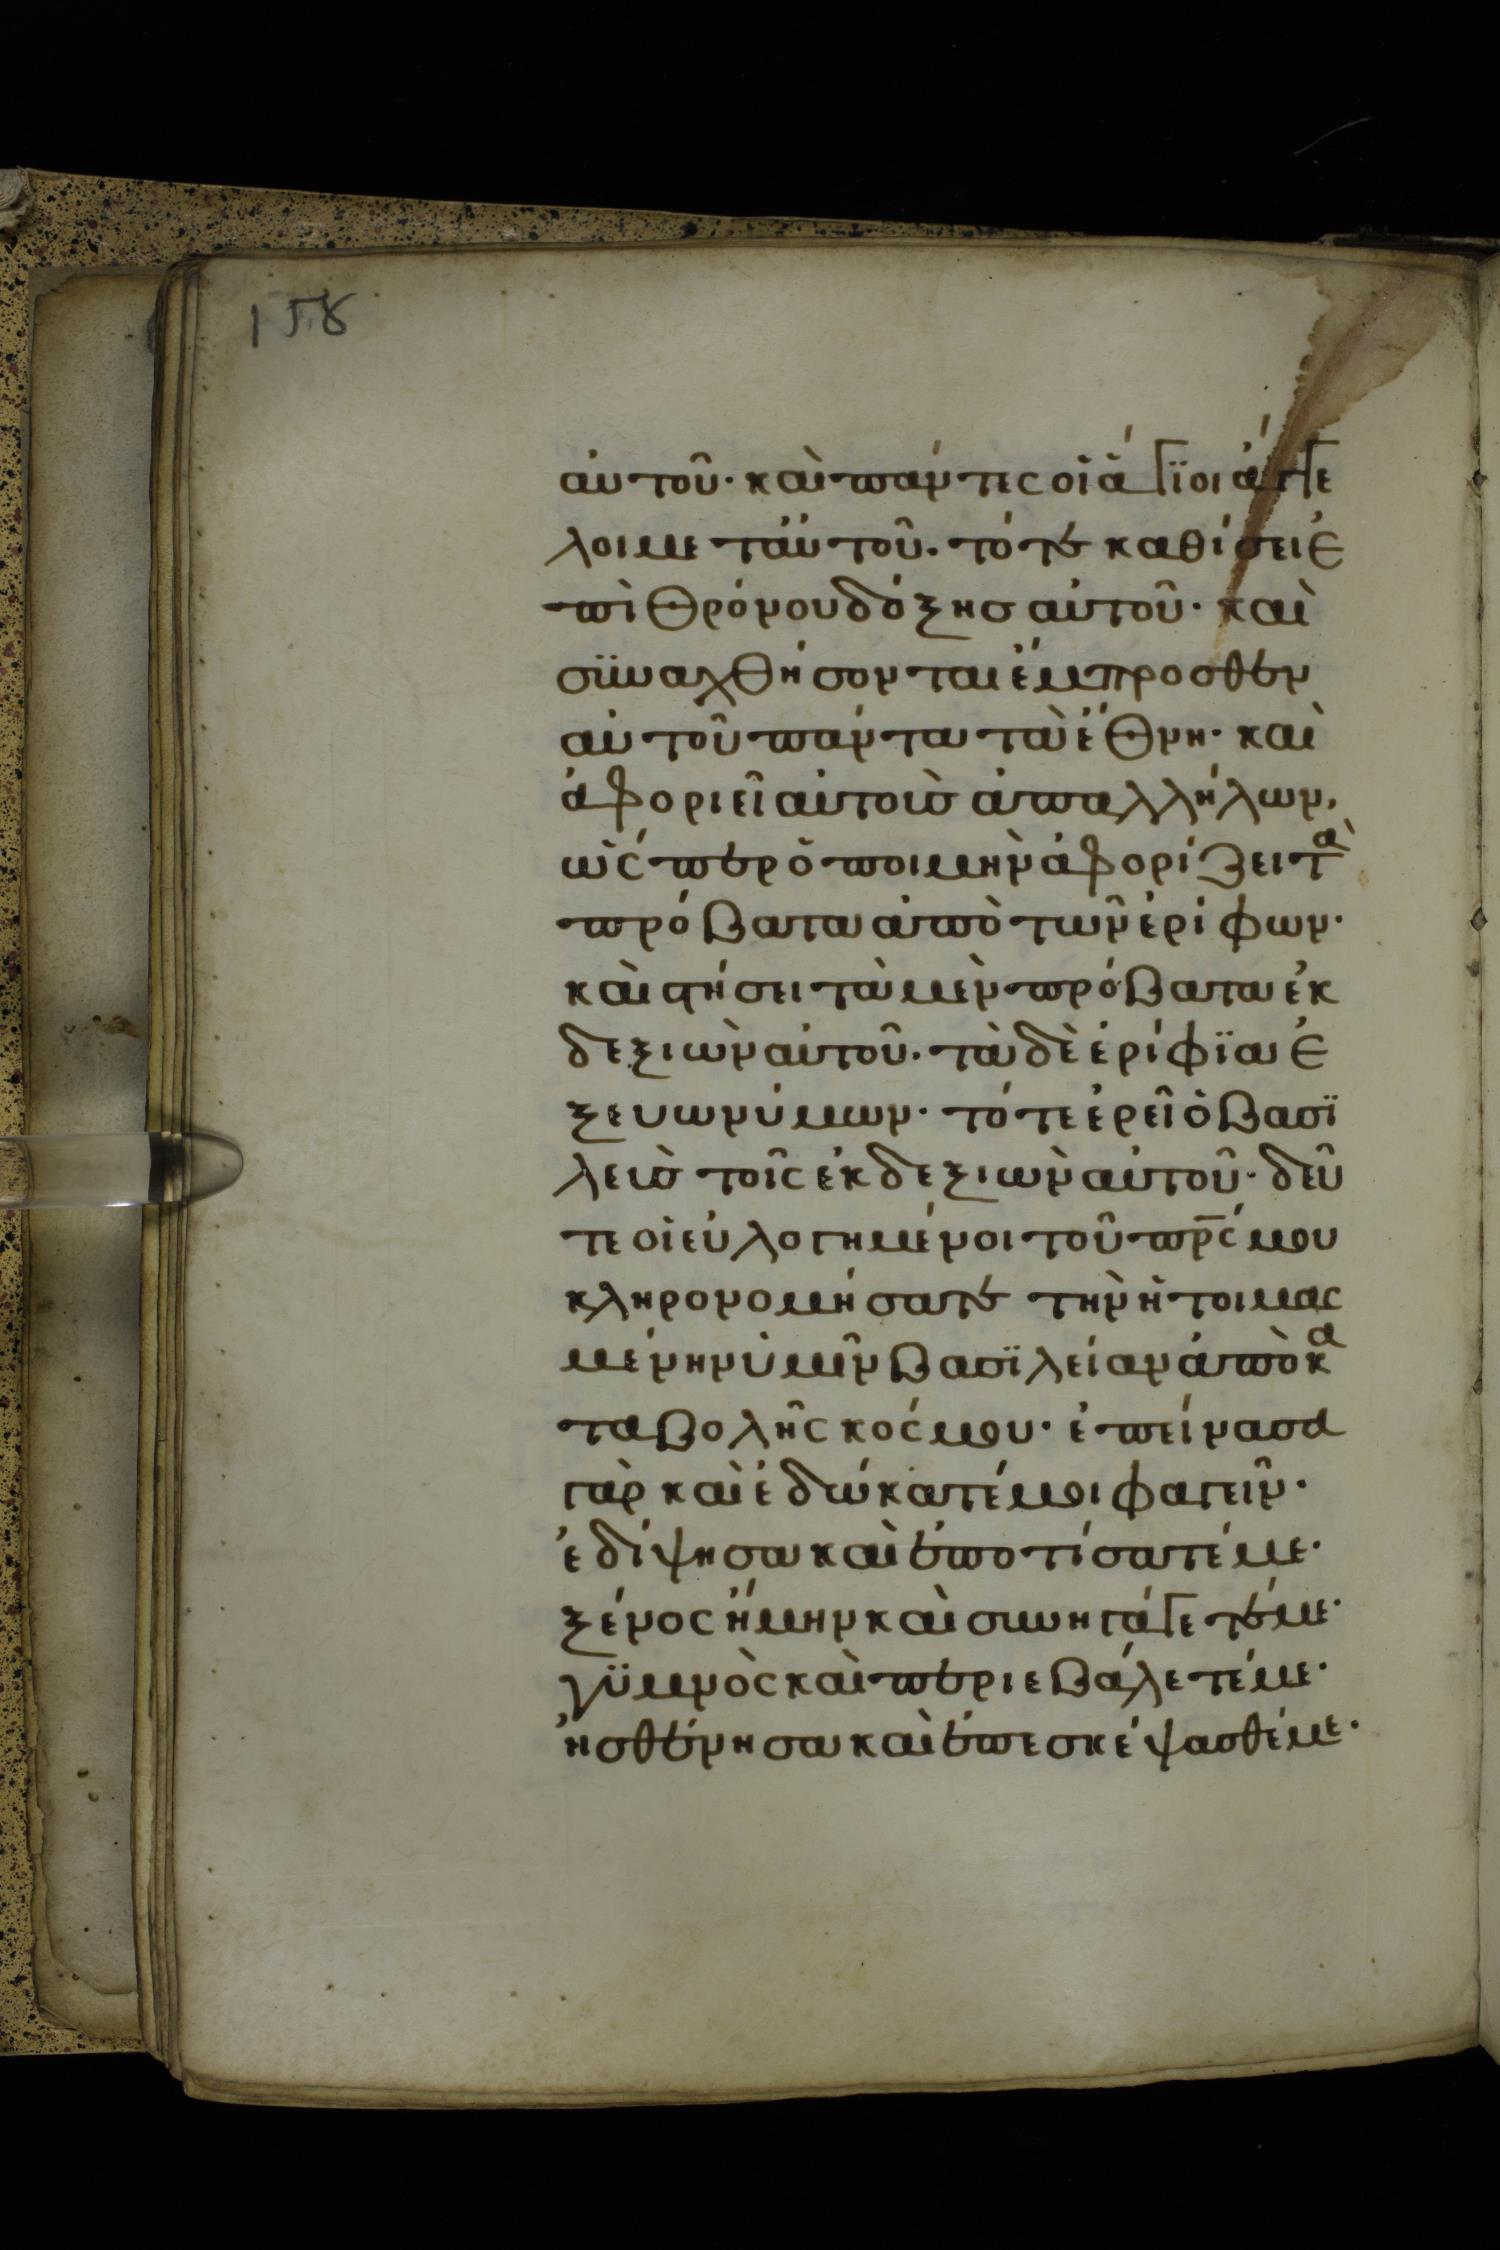 158
αὐτοῦ· καὶ πάντες οἱ ἅγϊοι ἄγγε
λοι μετ αὐτοῦ· τότε καθίσει ἐ
πὶ θρόνου δόξησ αὐτοῦ· καὶ
σϋναχθήσονται ἔμπροσθεν
αὐτοῦ πάντα τὰ ἔθνη· καὶ
ἀφοριεῖ αὐτοὺσ ἀπαλλήλων,
ὥσπερ ὁ ποιμὴν ἀφορίζει τὰ
πρόβατα ἀπὸ τῶν ἐρίφων·
καὶ στήσει τὰ μὲν πρόβατα ἐκ
δεξιῶν αὐτοῦ· τὰ δὲ ἐρίφϊα ἐ
ξευωνύμων· τότε ἐρεῖ ὁ βασϊ
λεὺσ τοῖς ἐκ δεξιῶν αὐτοῦ· δεῦ
τε οἱ εὐλογημένοι τοῦ πρ̅ς μου
κληρονομήσατε τὴν ἡτοιμας
μένην ὑμῖν βασϊλείαν ἀπὸ κα
ταβολῆς κόσμου· ἐπείνασα
γὰρ καὶ ἐδώκατέ μοι φαγεῖν·
ἐδίψησα καὶ ἐποτίσατέ με·
ξένος ἤμην καὶ συνηγάγετέ με·
γϋμνὸς καὶ περιεβάλετέ με·
ἠσθένησα καὶ ἐπεσκέψασθέ με·